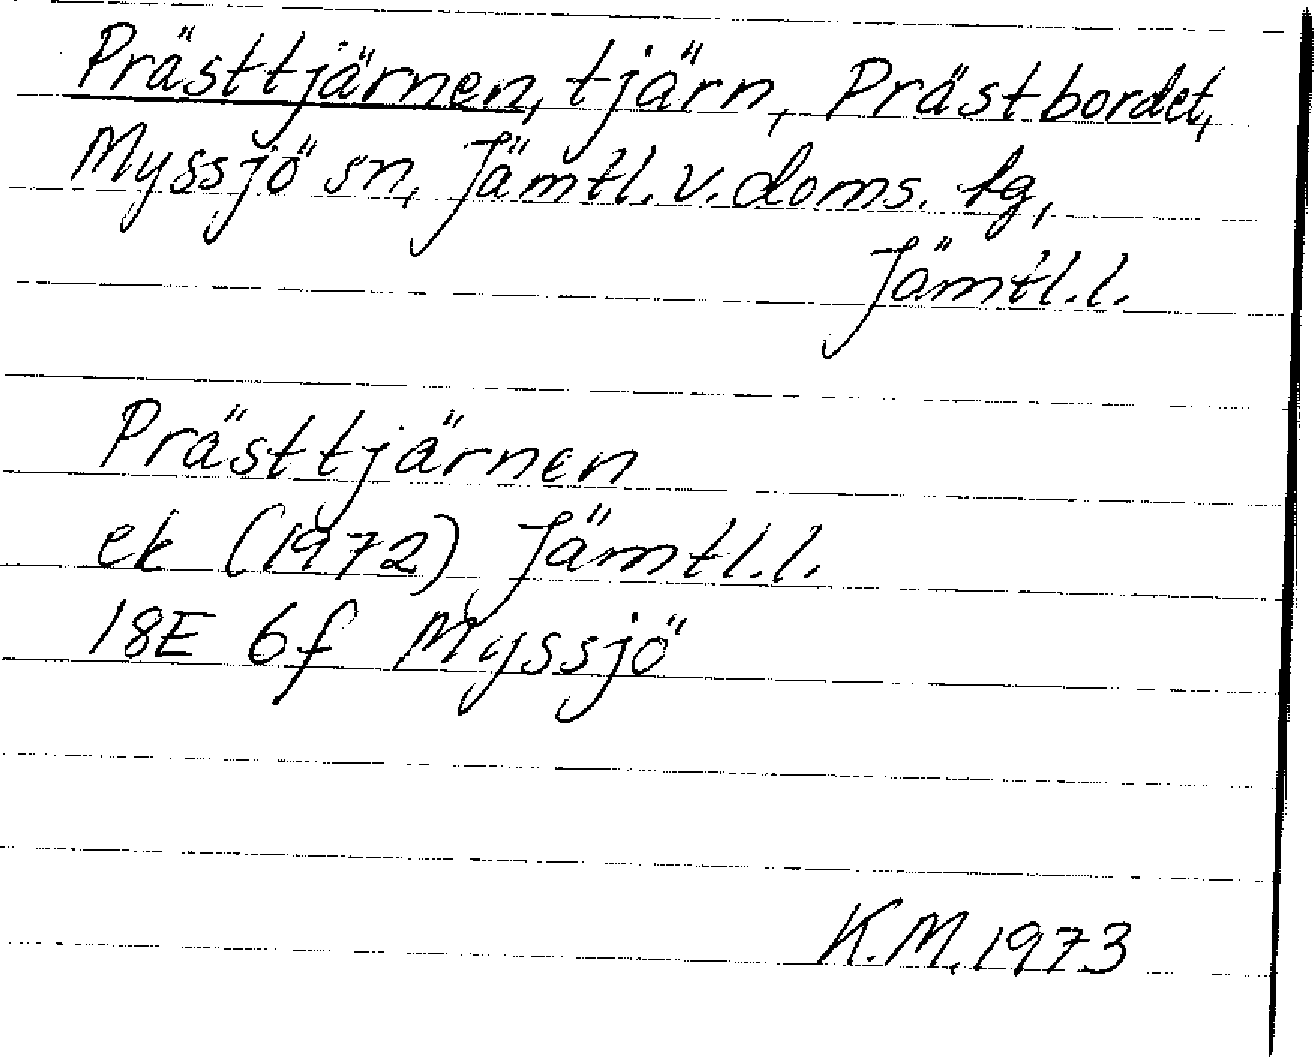 Prästtjärnen, tjärn, Prästbordet,
Myssjö sn, Jämtl. v. doms. tg,
Jämtl. l.
Prästtjärnen
ek (1972) Jämtl. l.
18E 6f Myssjö
K. M. 1973